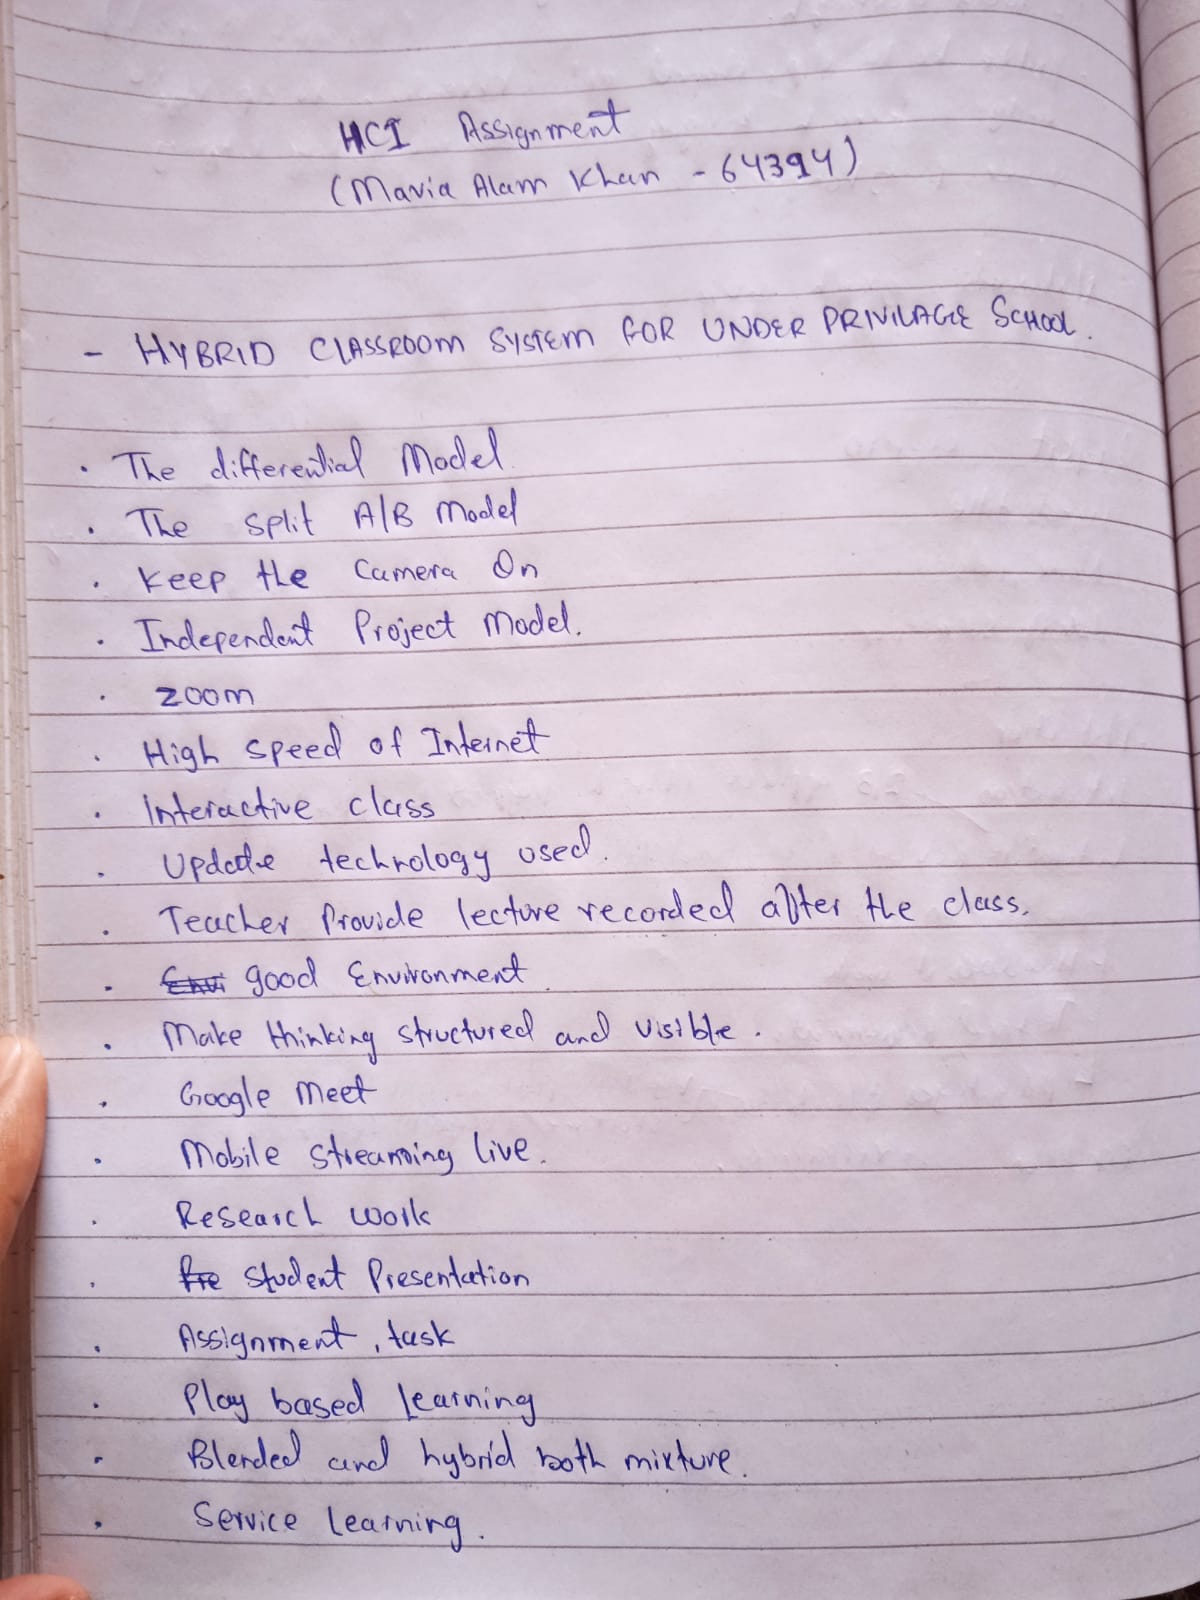 HCI Assignment
(Mavia Alam Khan - 64394)
- HYBRID CLASSROOM SYSTEM FOR UNDER PRIVILAGE SCHOOL.
. The differential Model
. The split A/B Model
. Keep the Camera On
. Independent Project Model.
. Zoom
. High speed of Internet
. Interactive class
. Update technology used.
. Teacher Provide lecture recorded after the class.
. Envi good Environment.
. Make thinking structured and visible.
. Google Meet
. Mobile streaming live.
. Research work
. Pre student Presentation
. Assignment, task
. Play based learning
. Blended and hybrid both mixture.
. Service Learning.